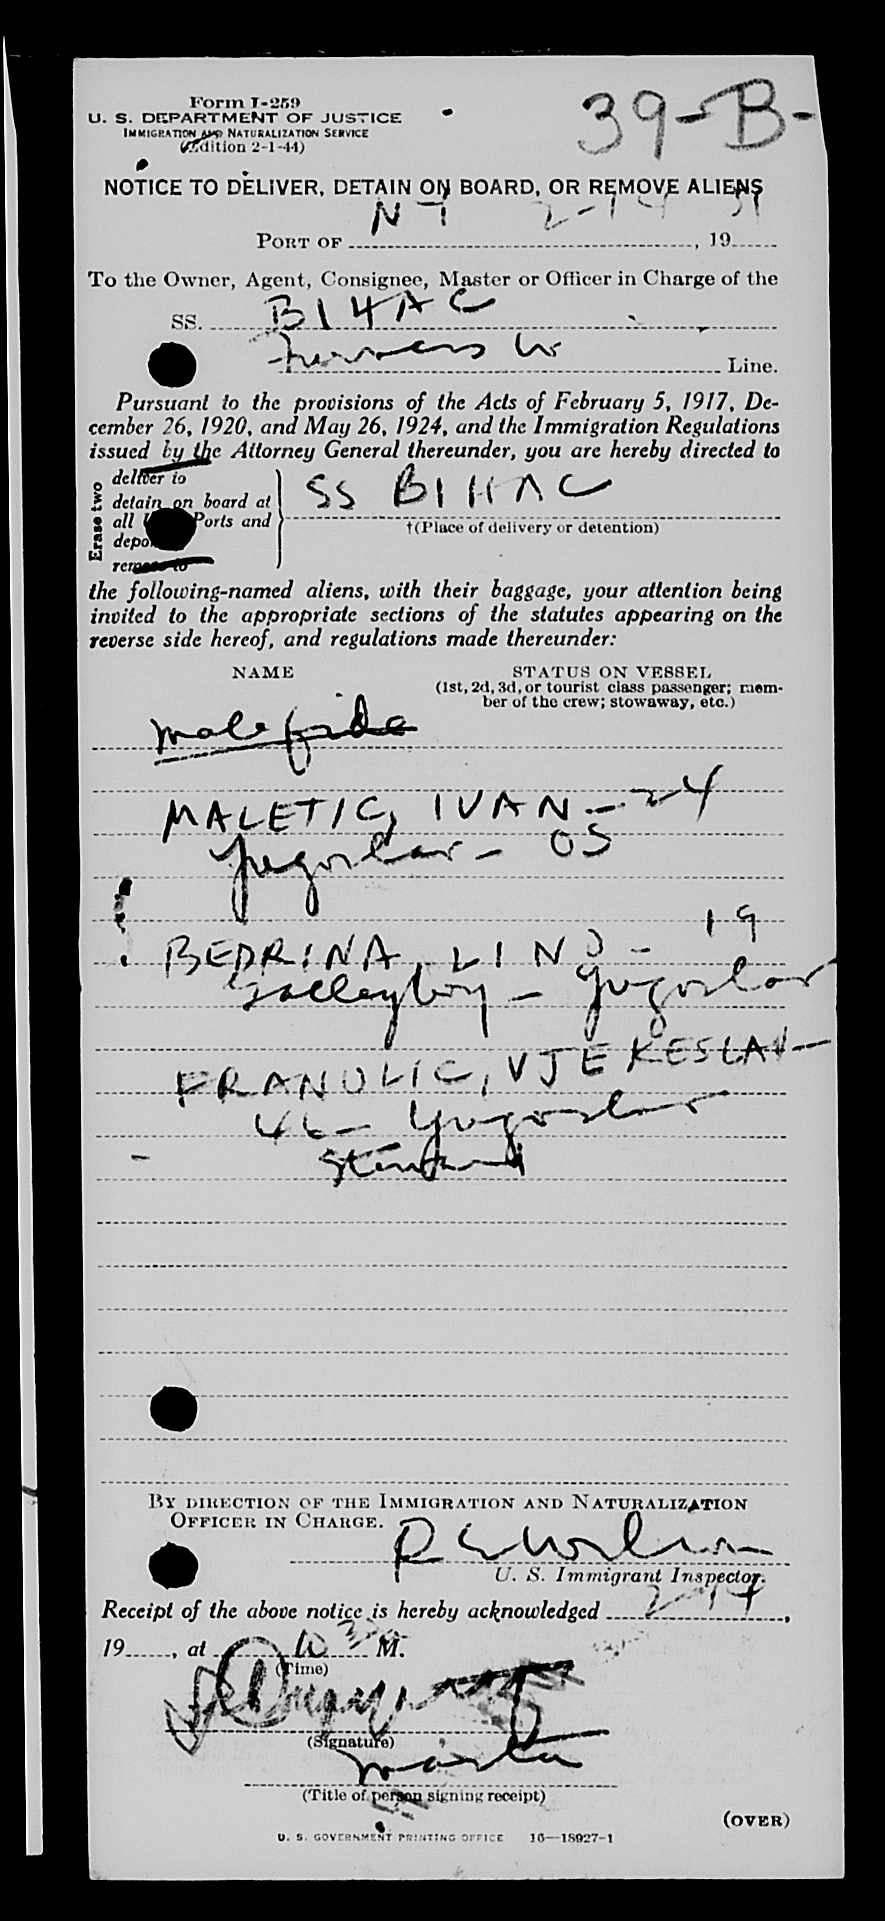 39-B-
Form I-259
U. S. DEPARTMENT OF JUSTICE
IMMIGRATION AND NATURALIZATION SERVICE
(Edition 2-1-44)
NOTICE TO DELIVER, DETAIN ON BOARD, OR REMOVE ALIENS
PORT OF NY 2-14, 1951
To the Owner, Agent, Consignee, Master or Officer in Charge of the
SS. BIHAC
Line.
Pursuant to the provisions of the Acts of February 5, 1917, De-
cember 26, 1920, and May 26, 1924, and the Immigration Regulations
issued by the Attorney General thereunder, you are hereby directed to
Erase two
deliver to
detain on board at
all Ports and
remove to
SS BIHAC
†(Place of delivery or detention)
the following-named aliens, with their baggage, your attention being
invited to the appropriate sections of the statutes appearing on the
reverse side hereof, and regulations made thereunder:
NAME STATUS ON VESSEL
(1st, 2d, 3d, or tourist class passenger; mem-
ber of the crew; stowaway, etc.)
mala fide
MALETIC, IVAN - 24
Yugoslav - OS
BEDRINA, LINO - 19
Galleyboy - Yugoslav
FRANULIC, VJEKESLAV -
46 - Yugoslav
Steward
BY DIRECTION OF THE IMMIGRATION AND NATURALIZATION
OFFICER IN CHARGE.
U. S. Immigrant Inspector.
Receipt of the above notice is hereby acknowledged 2-14,
19, at 10 30 M.
(Time)
(Signature)
master
(Title of person signing receipt)
(OVER)
U. S. GOVERNMENT PRINTING OFFICE 16—18927-1